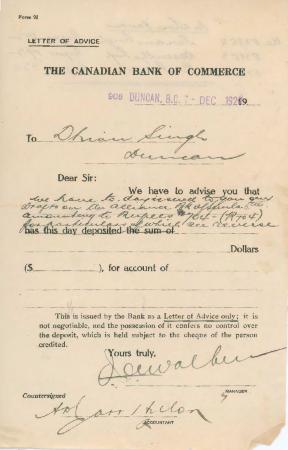 Form 92
LETTER OF ADVICE
THE CANADIAN BANK OF COMMERCE
908 DUNCAN, B.C. 7- DEC 192 19
To Dhian Singh
Duncan
Dear Sir:
We have to advise you that
we have to-day issued to you our
drafts on the Alliance Bk of Simla
amounting to Rupees 704 - (R704)
for particulars of which see reverse
has this day deposited the sum of
Dollars
($ ), for account of
This is issued by the Bank as a Letter of Advice only; it is
not negotiable, and the possession of it confers no control over
the deposit, which is held subject to the cheque of the person
credited.
Yours truly,
MANAGER
Countersigned
ACCOUNTANT